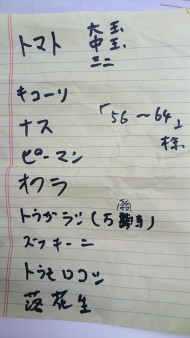 トマト 大玉
中玉
ミニ
キューリ
ナス
「56〜64」
様
ピーマン
オクラ
トウガラシ(万願寺)
ズッキーニ
トウモロコシ
落花生